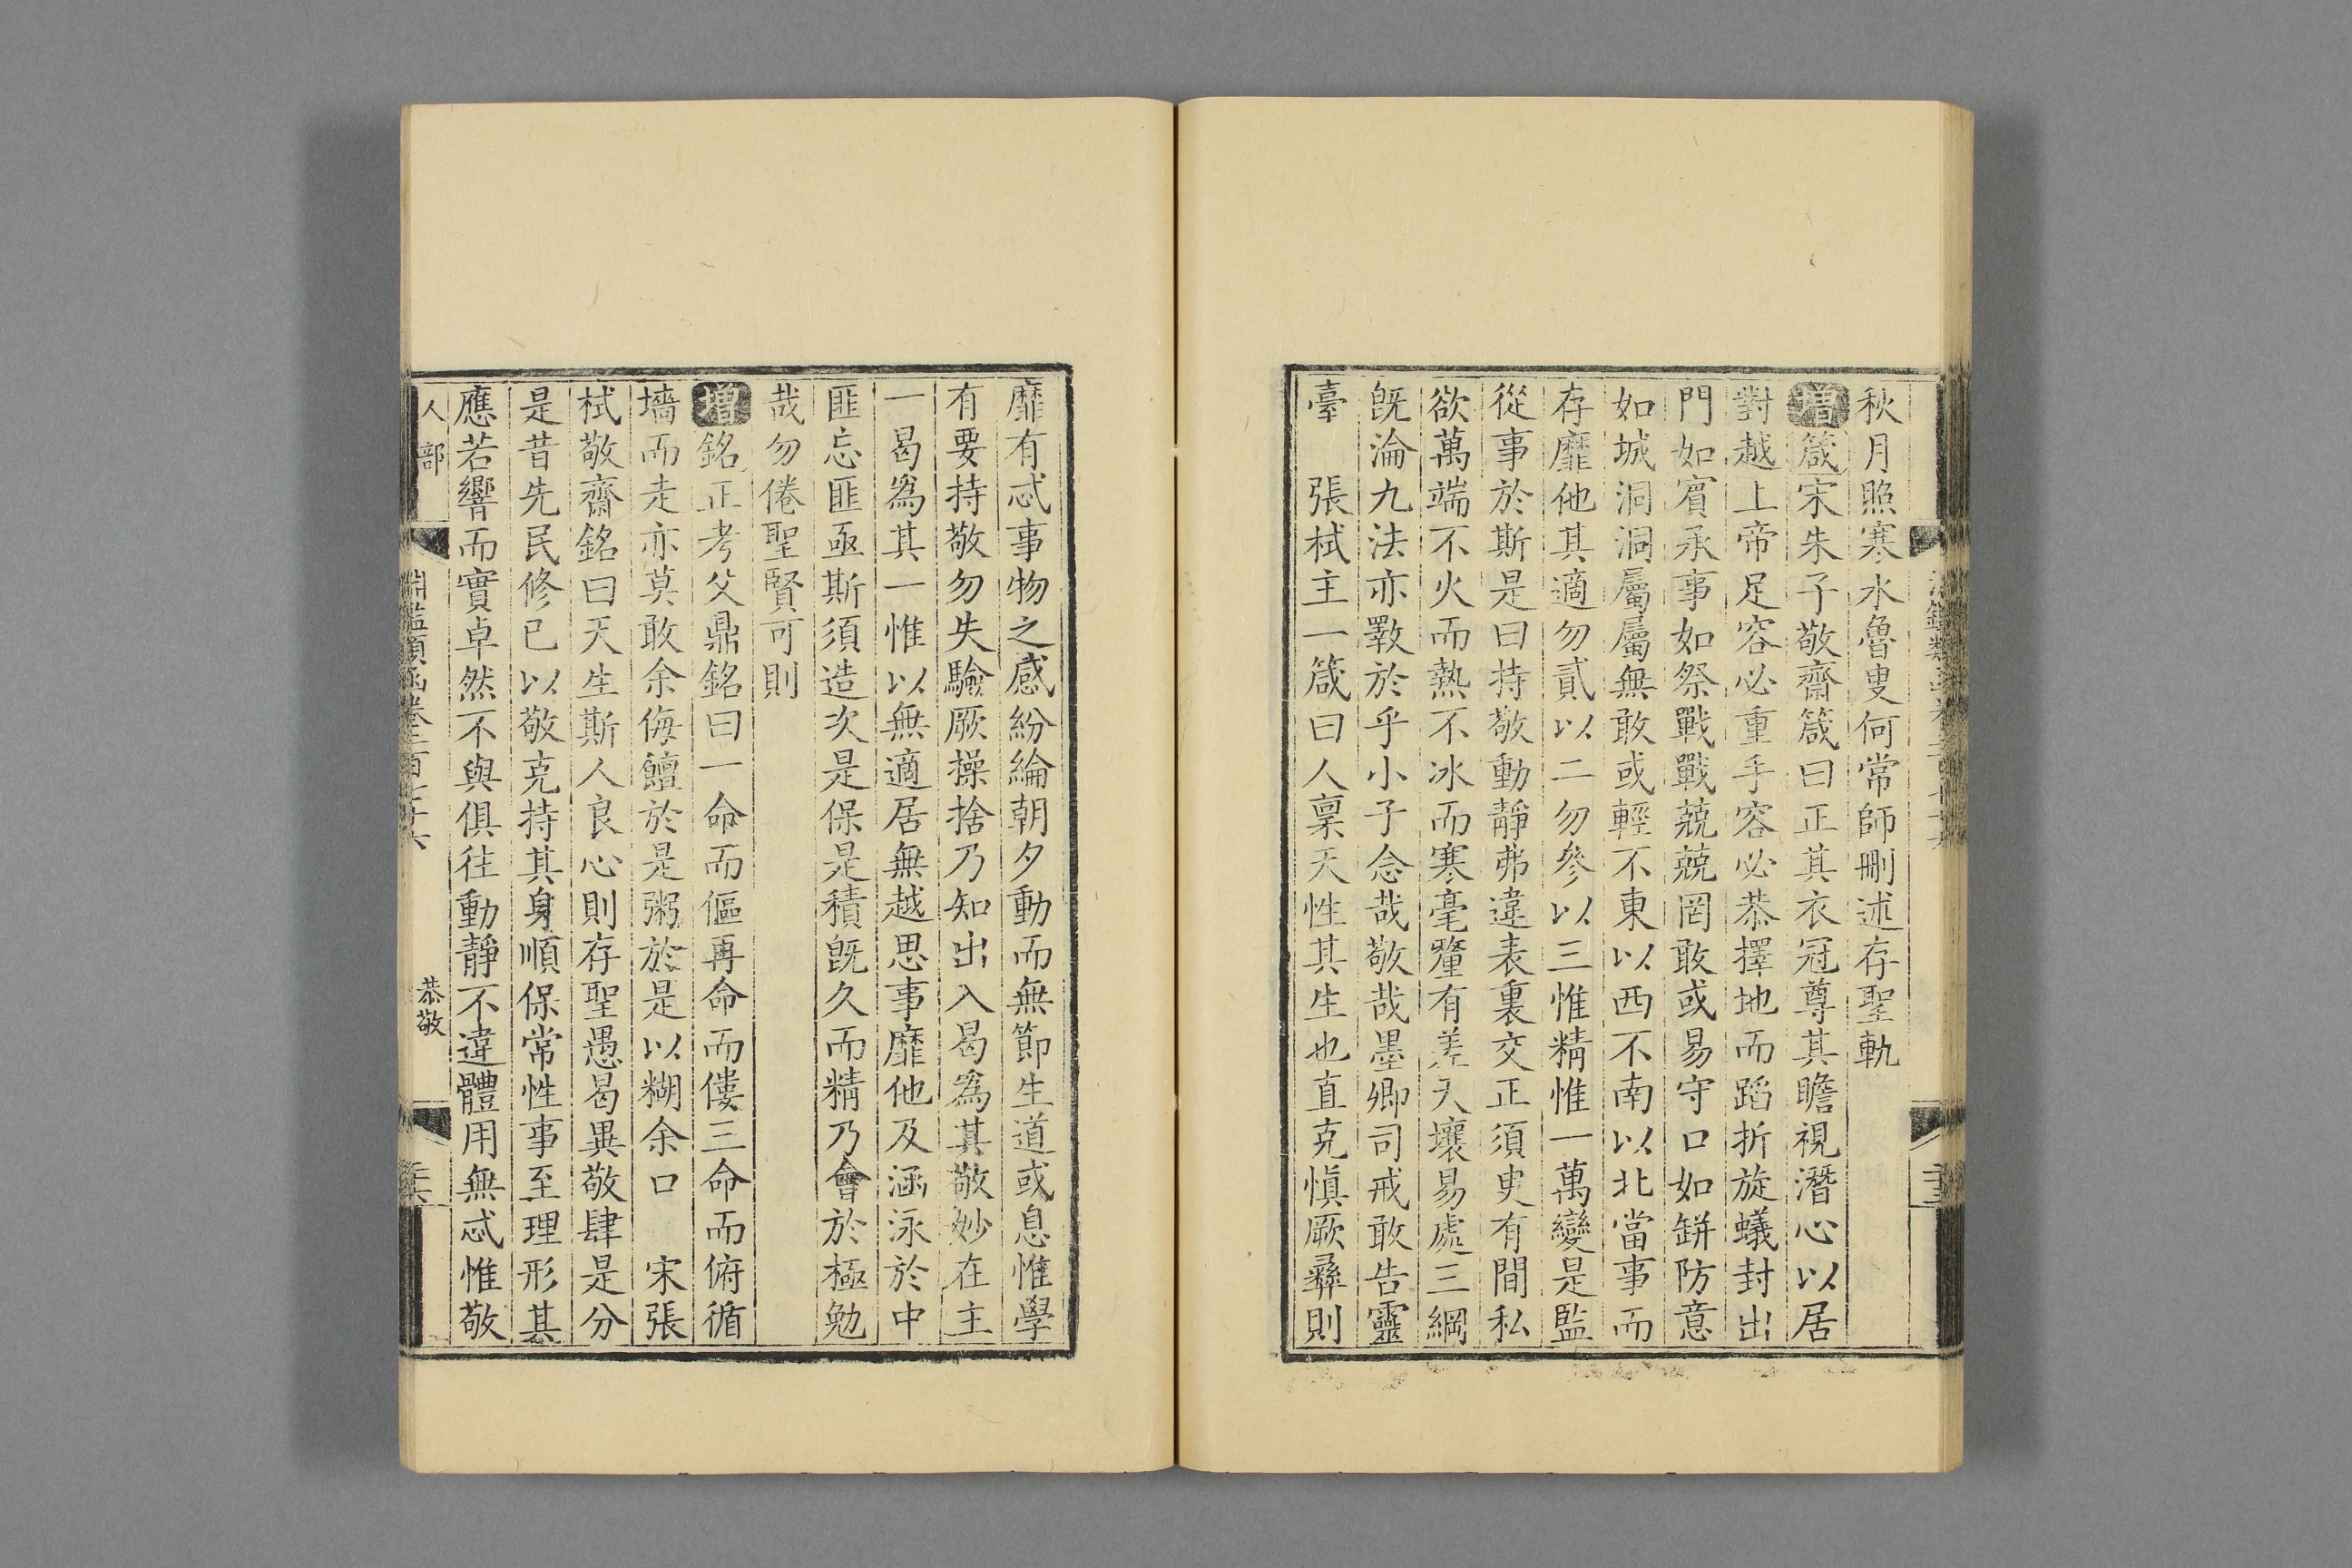 秋月照寒水魯叟何常師刪述存聖軌
增箴宋朱子敬齋箴曰正其衣冠尊其瞻視潛心以居
對越上帝足容必重手容必恭擇地而蹈折旋蟻封出
門如賓承事如祭戰戰兢兢罔敢或易守口如缾防意
如城洞洞屬屬無敢或輕不東以西不南以北當事而
存靡他其適勿貳以二勿參以三惟精惟一萬變是監
從事於斯是曰持敬動靜弗違表裏交正須臾有間私
欲萬端不火而熱不冰而寒毫釐有差天壤易處三綱
旣淪九法亦斁於乎小子念哉敬哉墨卿司戒敢告靈
臺　張栻主一箴曰人禀天性其生也直克愼厥彝則
靡有忒事物之感紛綸朝夕動而無節生道或息惟學
有要持敬勿失驗厥操捨乃知出入曷爲其敬妙在主
一曷爲其一惟以無適居無越思事靡他及涵泳於中
匪忘匪亟斯須造次是保是積旣久而精乃會於極勉
哉勿倦聖賢可則
增銘正考父鼎銘曰一命而傴再命而僂三命而俯循
墻而走亦莫敢余侮饘於是粥於是以糊余口　宋張
栻敬齋銘曰天生斯人良心則存聖愚曷異敬肆是分
是昔先民修已以敬克持其身順保常性事至理形其
應若響而實卓然不與俱往動靜不違體用無忒惟敬
人部
淵鑑類函卷二百七十六
恭敬